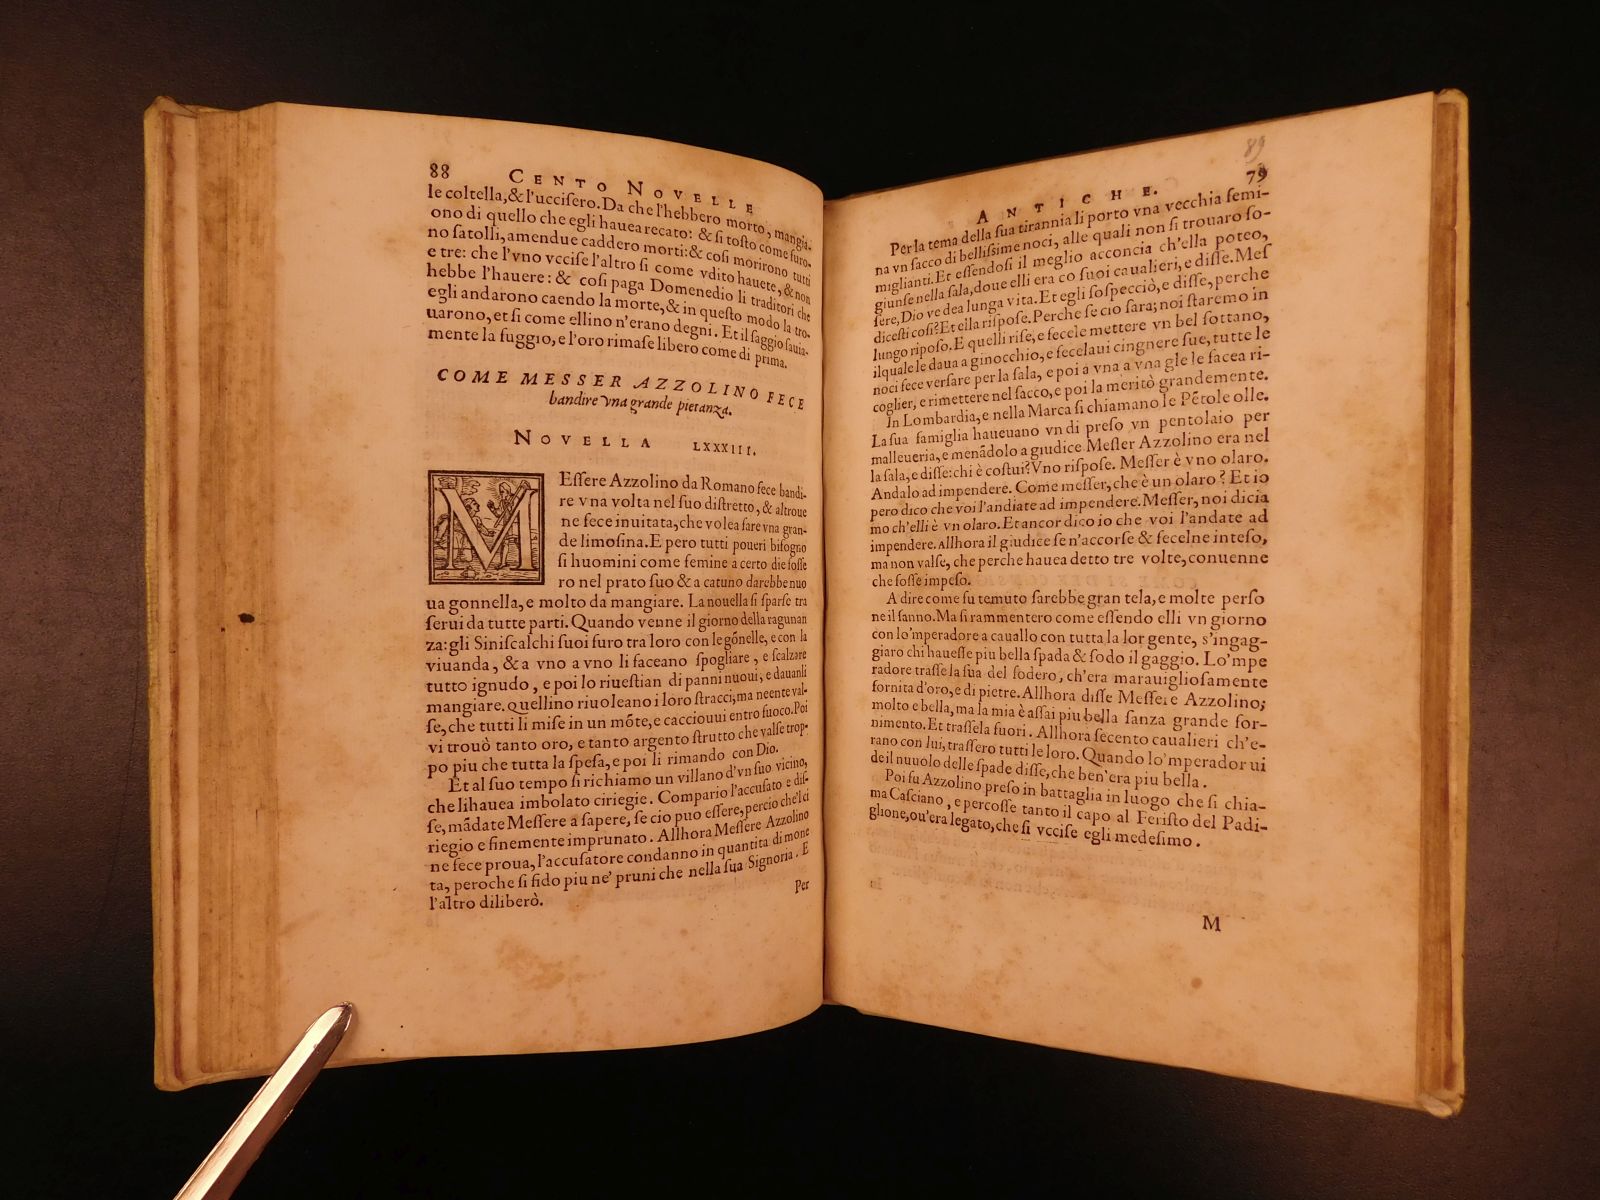 88 CENTO NOVELLE
le coltella, & l'uccisero. Da che l'hebbero morto, mangia-
ono di quello che egli hauea recato: & si tosto come furo-
no satolli, amendue caddero morti: & cosi morirono tutti
e tre: che l'vno vccise l'altro si come vdito hauete, & non
hebbe l'hauere: & cosi paga Domenedio li traditori che
egli andarono caendo la morte, & in questo modo la tro-
uarono, et si come ellino n'erano degni. Et il saggio sauia-
mente la fuggio, e l'oro rimase libero come di prima.
COME MESSER AZZOLINO FECE
bandire vna grande pietanza.
NOVELLA LXXXIII.
MEssere Azzolino da Romano fece bandi-
re vna volta nel suo distretto, & altroue
ne fece inuitata, che volea fare vna gran-
de limosina. E pero tutti poueri bisogno
si huomini come femine a certo die fosse
ro nel prato suo & a catuno darebbe nuo
ua gonnella, e molto da mangiare. La nouella si sparse tra
serui da tutte parti. Quando venne il giorno della ragunan
za: gli Siniscalchi suoi furo tra loro con le gōnelle, e con la
viuanda, & a vno a vno li faceano spogliare, e scalzare
tutto ignudo, e poi lo riuestian di panni nuoui, e dauanli
mangiare. Quellino riuoleano i loro stracci; ma neente val-
se, che tutti li mise in un mōte, e cacciouui entro fuoco. Poi
vi trouò tanto oro, e tanto argento strutto che valse trop-
po piu che tutta la spesa, e poi li rimando con Dio.
Et al suo tempo si richiamo un villano d'vn suo vicino,
che li hauea imbolato ciriegie. Compario l'accusato e dis-
se, mādate Messere a sapere, se cio puo essere, percio che'l ci
riegio e finemente imprunato. Allhora Messere Azzolino
ne fece proua, l'accusatore condanno in quantita di mone
ta, peroche si fido piu ne' pruni che nella sua Signoria. E
l'altro diliberò.
Per
89
ANTICHE. 79
Per la tema della sua tirannia li porto vna vecchia femi-
na vn sacco di bellissime noci, alle quali non si trouaro so-
miglianti. Et essendosi il meglio acconcia ch'ella poteo,
giunse nella sala, doue elli era co suoi caualieri, e disse. Mes
sere, Dio ve dea lunga vita. Et egli sospecciò, e disse, perche
dicesti cosi? Et ella rispose. Perche se cio sara; noi staremo in
lungo riposo. E quelli rise, e fecele mettere vn bel sottano,
ilquale le daua a ginocchio, e fecelaui cingnere sue, tutte le
noci fece versare per la sala, e poi a vna a vna gle le facea ri-
coglier, e rimettere nel sacco, e poi la meritò grandemente.
In Lombardia, e nella Marca si chiamano le Pētole olle.
La sua famiglia haueuano vn di preso vn pentolaio per
malleueria, e menādolo a giudice Messer Azzolino era nel
la sala, e disse: chi è costui? Vno rispose. Messer è vno olaro.
Andalo ad impendere. Come messer, che è un olaro? Et io
pero dico che voi l'andiate ad impendere. Messer, noi dicia
mo ch'elli è vn olaro. Et ancor dico io che voi l'andate ad
impendere. Allhora il giudice se n'accorse & fecelne inteso,
ma non valse, che perche hauea detto tre volte, conuenne
che fosse impeso.
A dire come fu temuto sarebbe gran tela, e molte perso
ne il sanno. Ma si rammentero come essendo elli vn giorno
con lo'mperadore a cauallo con tutta la lor gente, s'ingag-
giaro chi hauesse piu bella spada & sodo il gaggio. Lo'mpe
radore trasse la sua del fodero, ch'era marauigliosamente
fornita d'oro, e di pietre. Allhora disse Messere Azzolino;
molto e bella, ma la mia è assai piu bella sanza grande for-
nimento. Et trassela fuori. Allhora secento caualieri ch'e-
rano con lui, trassero tutti le loro. Quando lo'mperador ui
de il nuuolo delle spade disse, che ben'era piu bella.
Poi fu Azzolino preso in battaglia in luogo che si chia-
ma Casciano, e percosse tanto il capo al Feristo del Padi-
glione, ou'era legato, che si vccise egli medesimo.
M